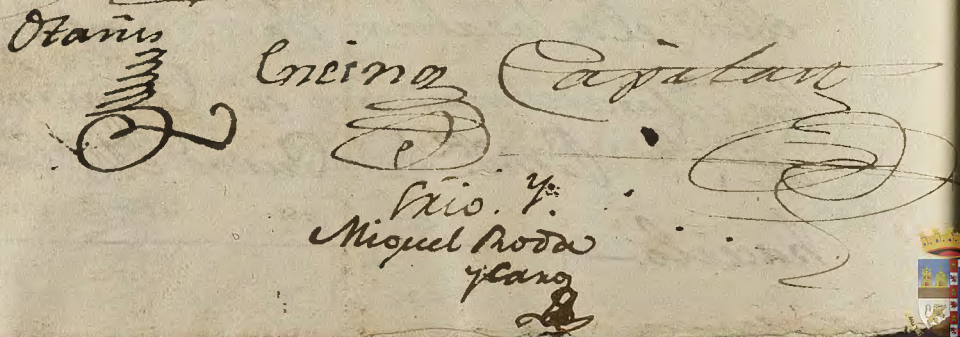 Otañes
Encina Capitan
Srio. Y.
Miguel Roda
y Caro